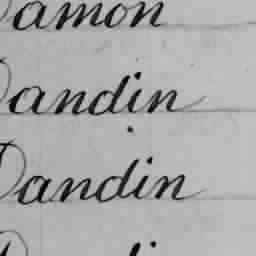 Damon
Dandin
Dandin